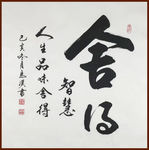 舍得
智慧
人生品味舍得
己亥冬月